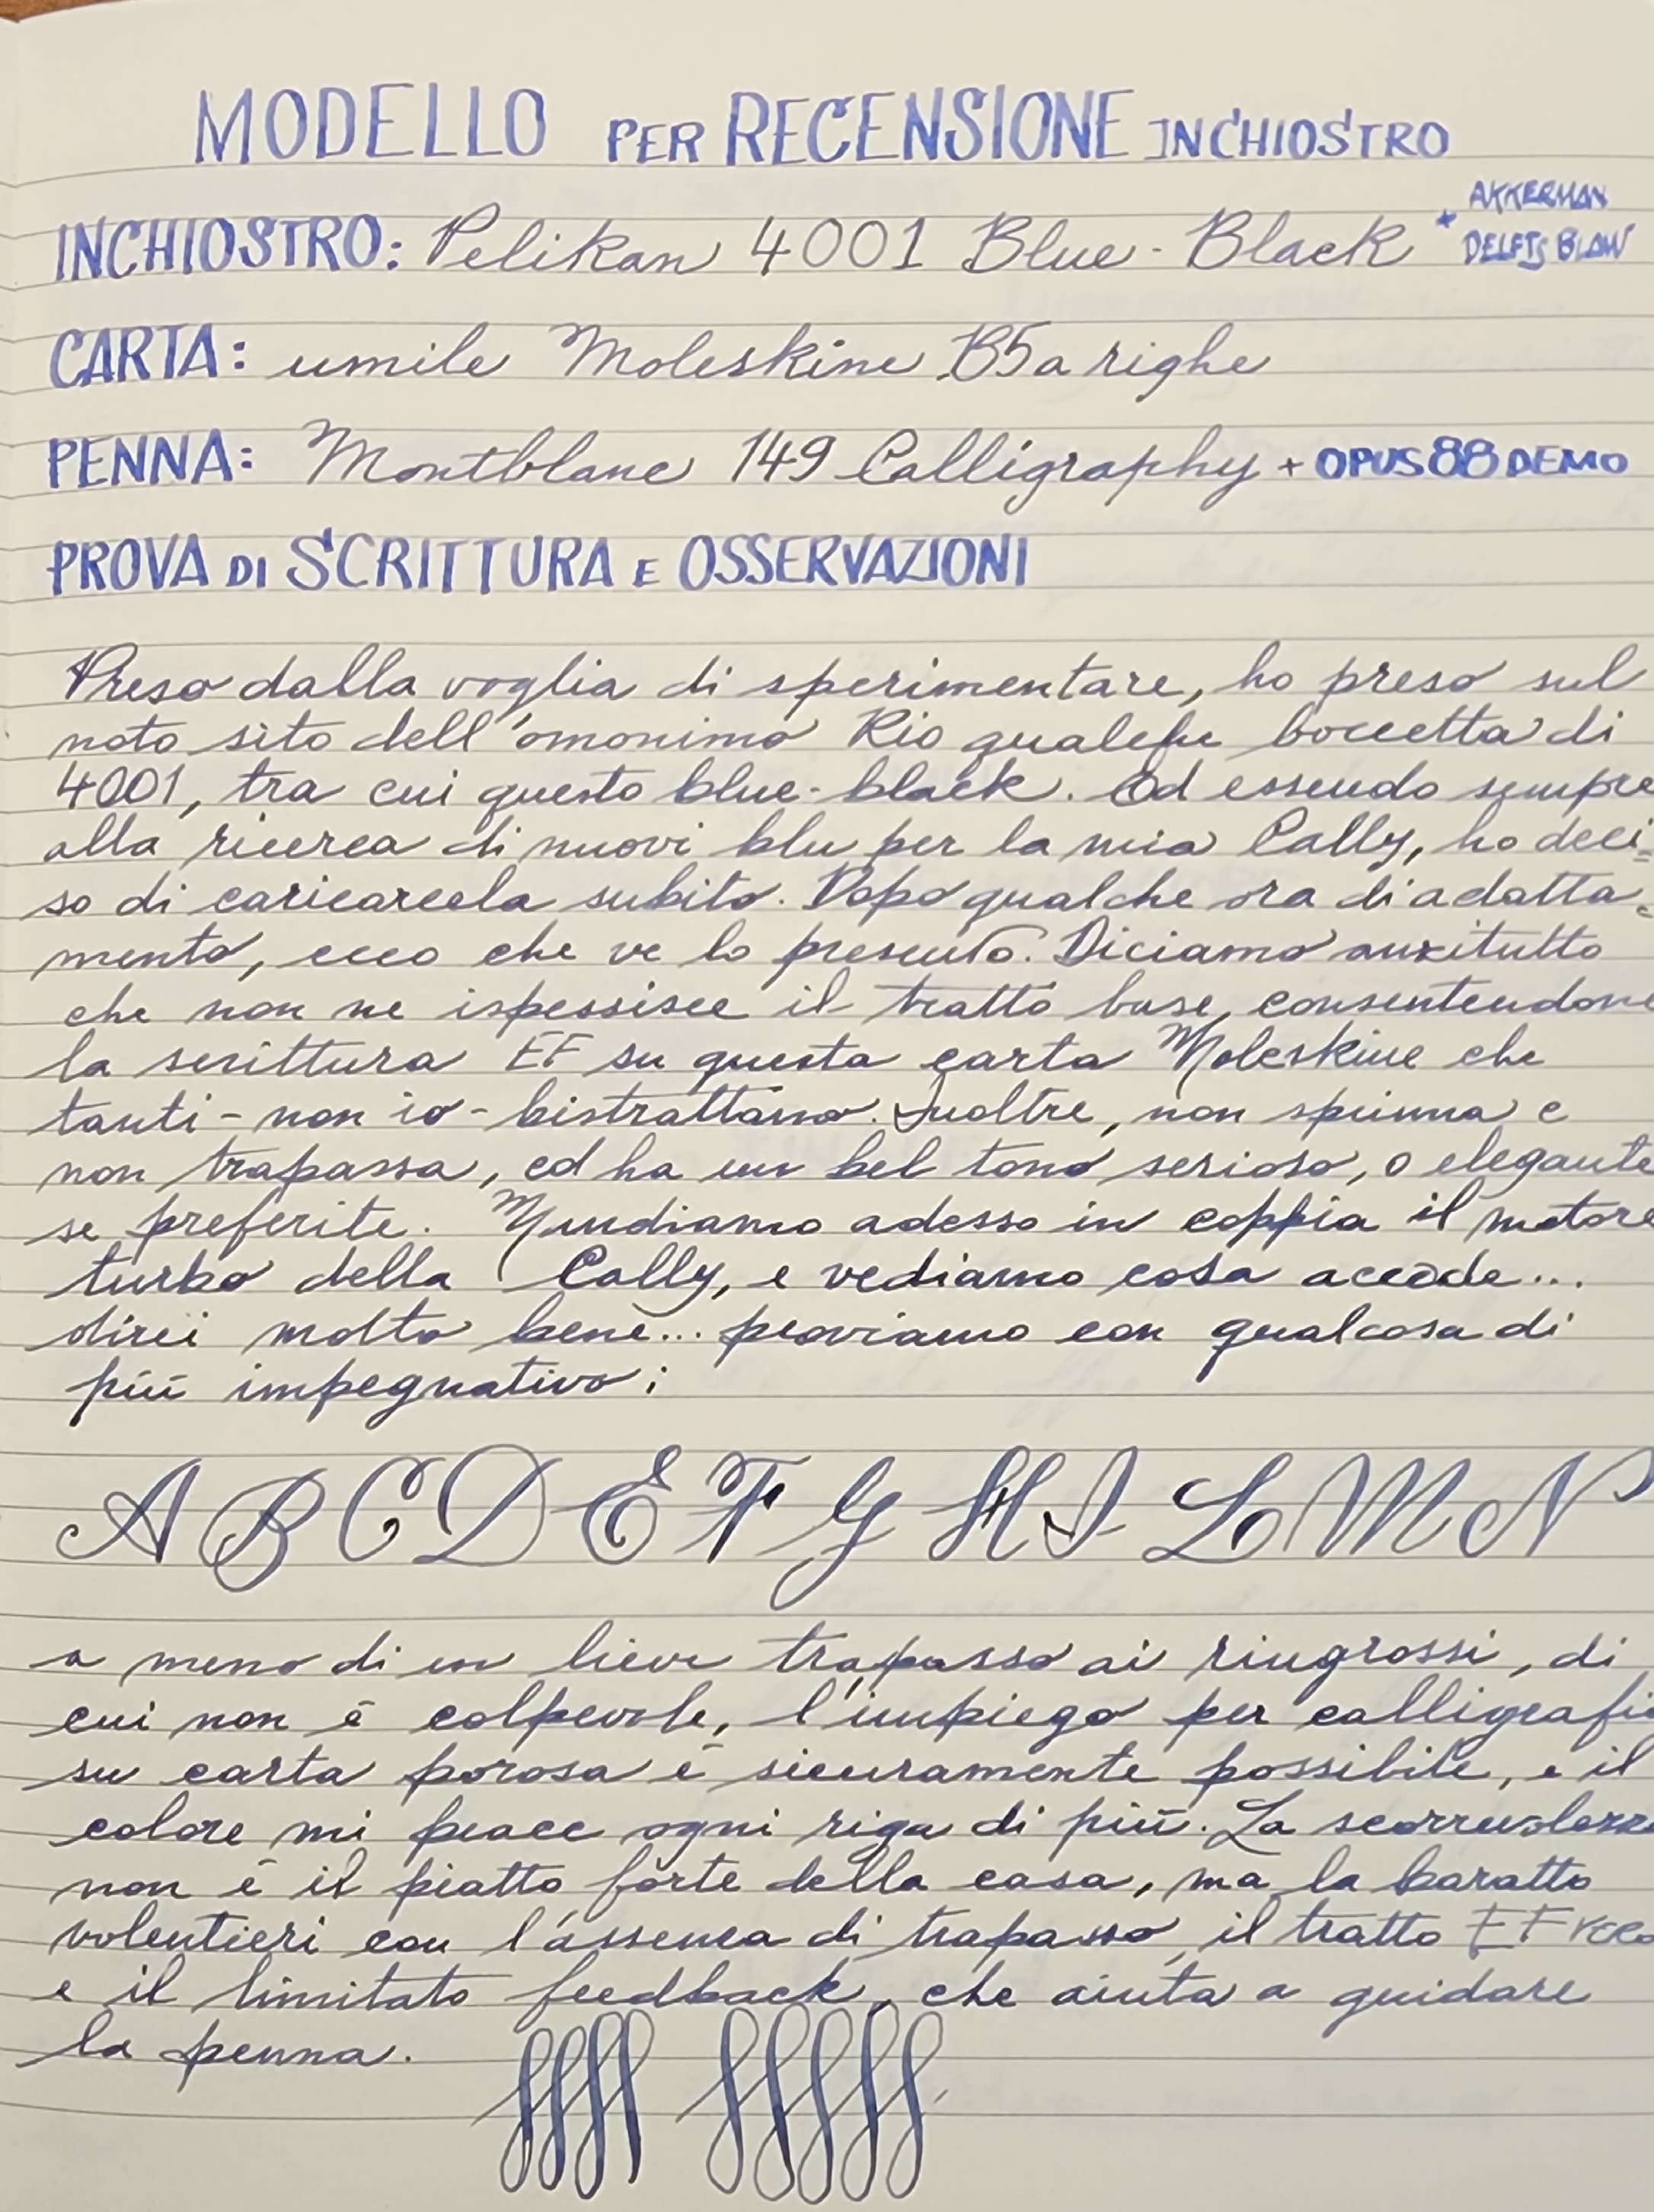 MODELLO PER RECENSIONE INCHIOSTRO
INCHIOSTRO: Pelikan 4001 Blue-Black * AKKERMAN
DELFTS BLAUW
CARTA: umile Moleskine B5 a righe
PENNA: Montblanc 149 Calligraphy + OPUS 88 DEMO
PROVA DI SCRITTURA E OSSERVAZIONI
Preso dalla voglia di sperimentare, ho preso sul
noto sito dell'omonimo Rio qualche boccetta di
4001, tra cui questo blue-black. Ed essendo sempre
alla ricerca di nuovi blu per la mia Cally, ho deci=
so di caricarcela subito. Dopo qualche ora di adatta=
mento, ecco che ve lo presento. Diciamo anzitutto
che non ne ispessisce il tratto base, consentendone
la scrittura EF su questa carta Moleskine che
tanti - non io - bistrattano. Inoltre, non spiuma e
non trapassa, ed ha un bel tono serioso, o elegante
se preferite. Mandiamo adesso in coppia il motore
turbo della Cally, e vediamo cosa accade...
direi molto bene... proviamo con qualcosa di
più impegnativo:
A B C D E F G H I L M N
a meno di un lieve trapasso ai ringrossi, di
cui non è colpevole, l'impiego per calligrafia
su carta porosa è sicuramente possibile, e il
colore mi piace ogni riga di più. La scorrevolezza
non è il piatto forte della casa, ma la baratto
volentieri con l'assenza di trapasso, il tratto EF vero
e il limitato feedback, che aiuta a guidare
la penna.